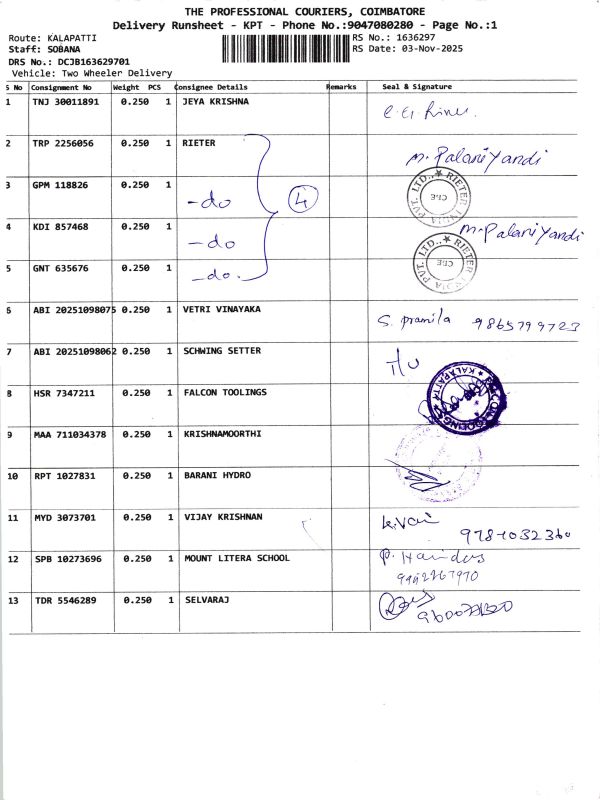 THE PROFESSIONAL COURIERS, COIMBATORE
Delivery Runsheet - KPT - Phone No.:9047080280 - Page No.:1
Route: KALAPATTI
RS No.: 1636297
Staff: SOBANA
RS Date: 03-Nov-2025
DRS No.: DCJB163629701
Vehicle: Two Wheeler Delivery
S No Consignment No Weight PCS Consignee Details Remarks Seal & Signature
1 TNJ 30011891 0.250 1 JEYA KRISHNA
2 TRP 2256056 0.250 1 RIETER M. Palaniyandi
3 GPM 118826 0.250 1 -do 4
RIETER INDIA PVT. LTD.,
4 KDI 857468 0.250 1 -do M. Palaniyandi
RIETER INDIA PVT. LTD.,
5 GNT 635676 0.250 1 -do.
6 ABI 20251098075 0.250 1 VETRI VINAYAKA S. pramila 9865799723
7 ABI 20251098062 0.250 1 SCHWING SETTER
8 HSR 7347211 0.250 1 FALCON TOOLINGS
KALAPATTI
9 MAA 711034378 0.250 1 KRISHNAMOORTHI
10 RPT 1027831 0.250 1 BARANI HYDRO
11 MYD 3073701 0.250 1 VIJAY KRISHNAN
12 SPB 10273696 0.250 1 MOUNT LITERA SCHOOL
13 TDR 5546289 0.250 1 SELVARAJ